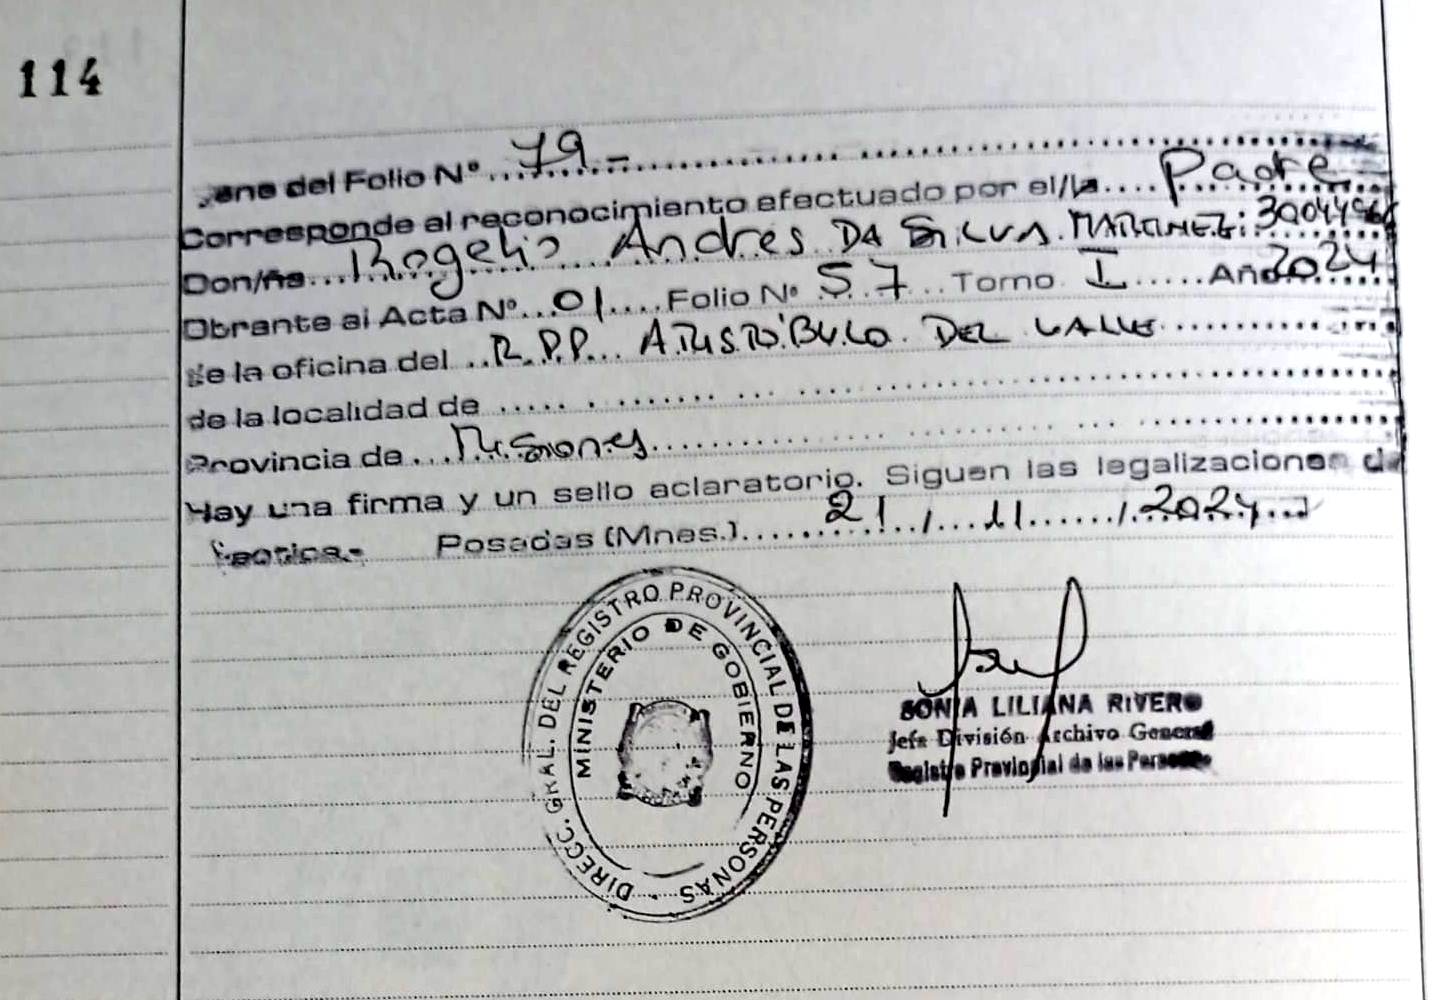 114
ene del Folio Nº 79-
Corresponde al reconocimiento efectuado por el/la Padre
Don/ña Rogelio Andres DA SILVA MARTINEZ:
Obrante al Acta Nº 01 Folio Nº 57 Tomo I Año 2024
de la oficina del R.P.P. ARISTÓBULO DEL VALLE
de la localidad de
Provincia de Misiones
Hay una firma y un sello aclaratorio. Siguen las legalizaciones de
Posadas (Mnes.) 21/11/2024
DIRECC. GRAL. DEL REGISTRO PROVINCIAL DE LAS PERSONAS
MINISTERIO DE GOBIERNO
SONIA LILIANA RIVERO
Jefe División Archivo General
Registro Provincial de las Personas